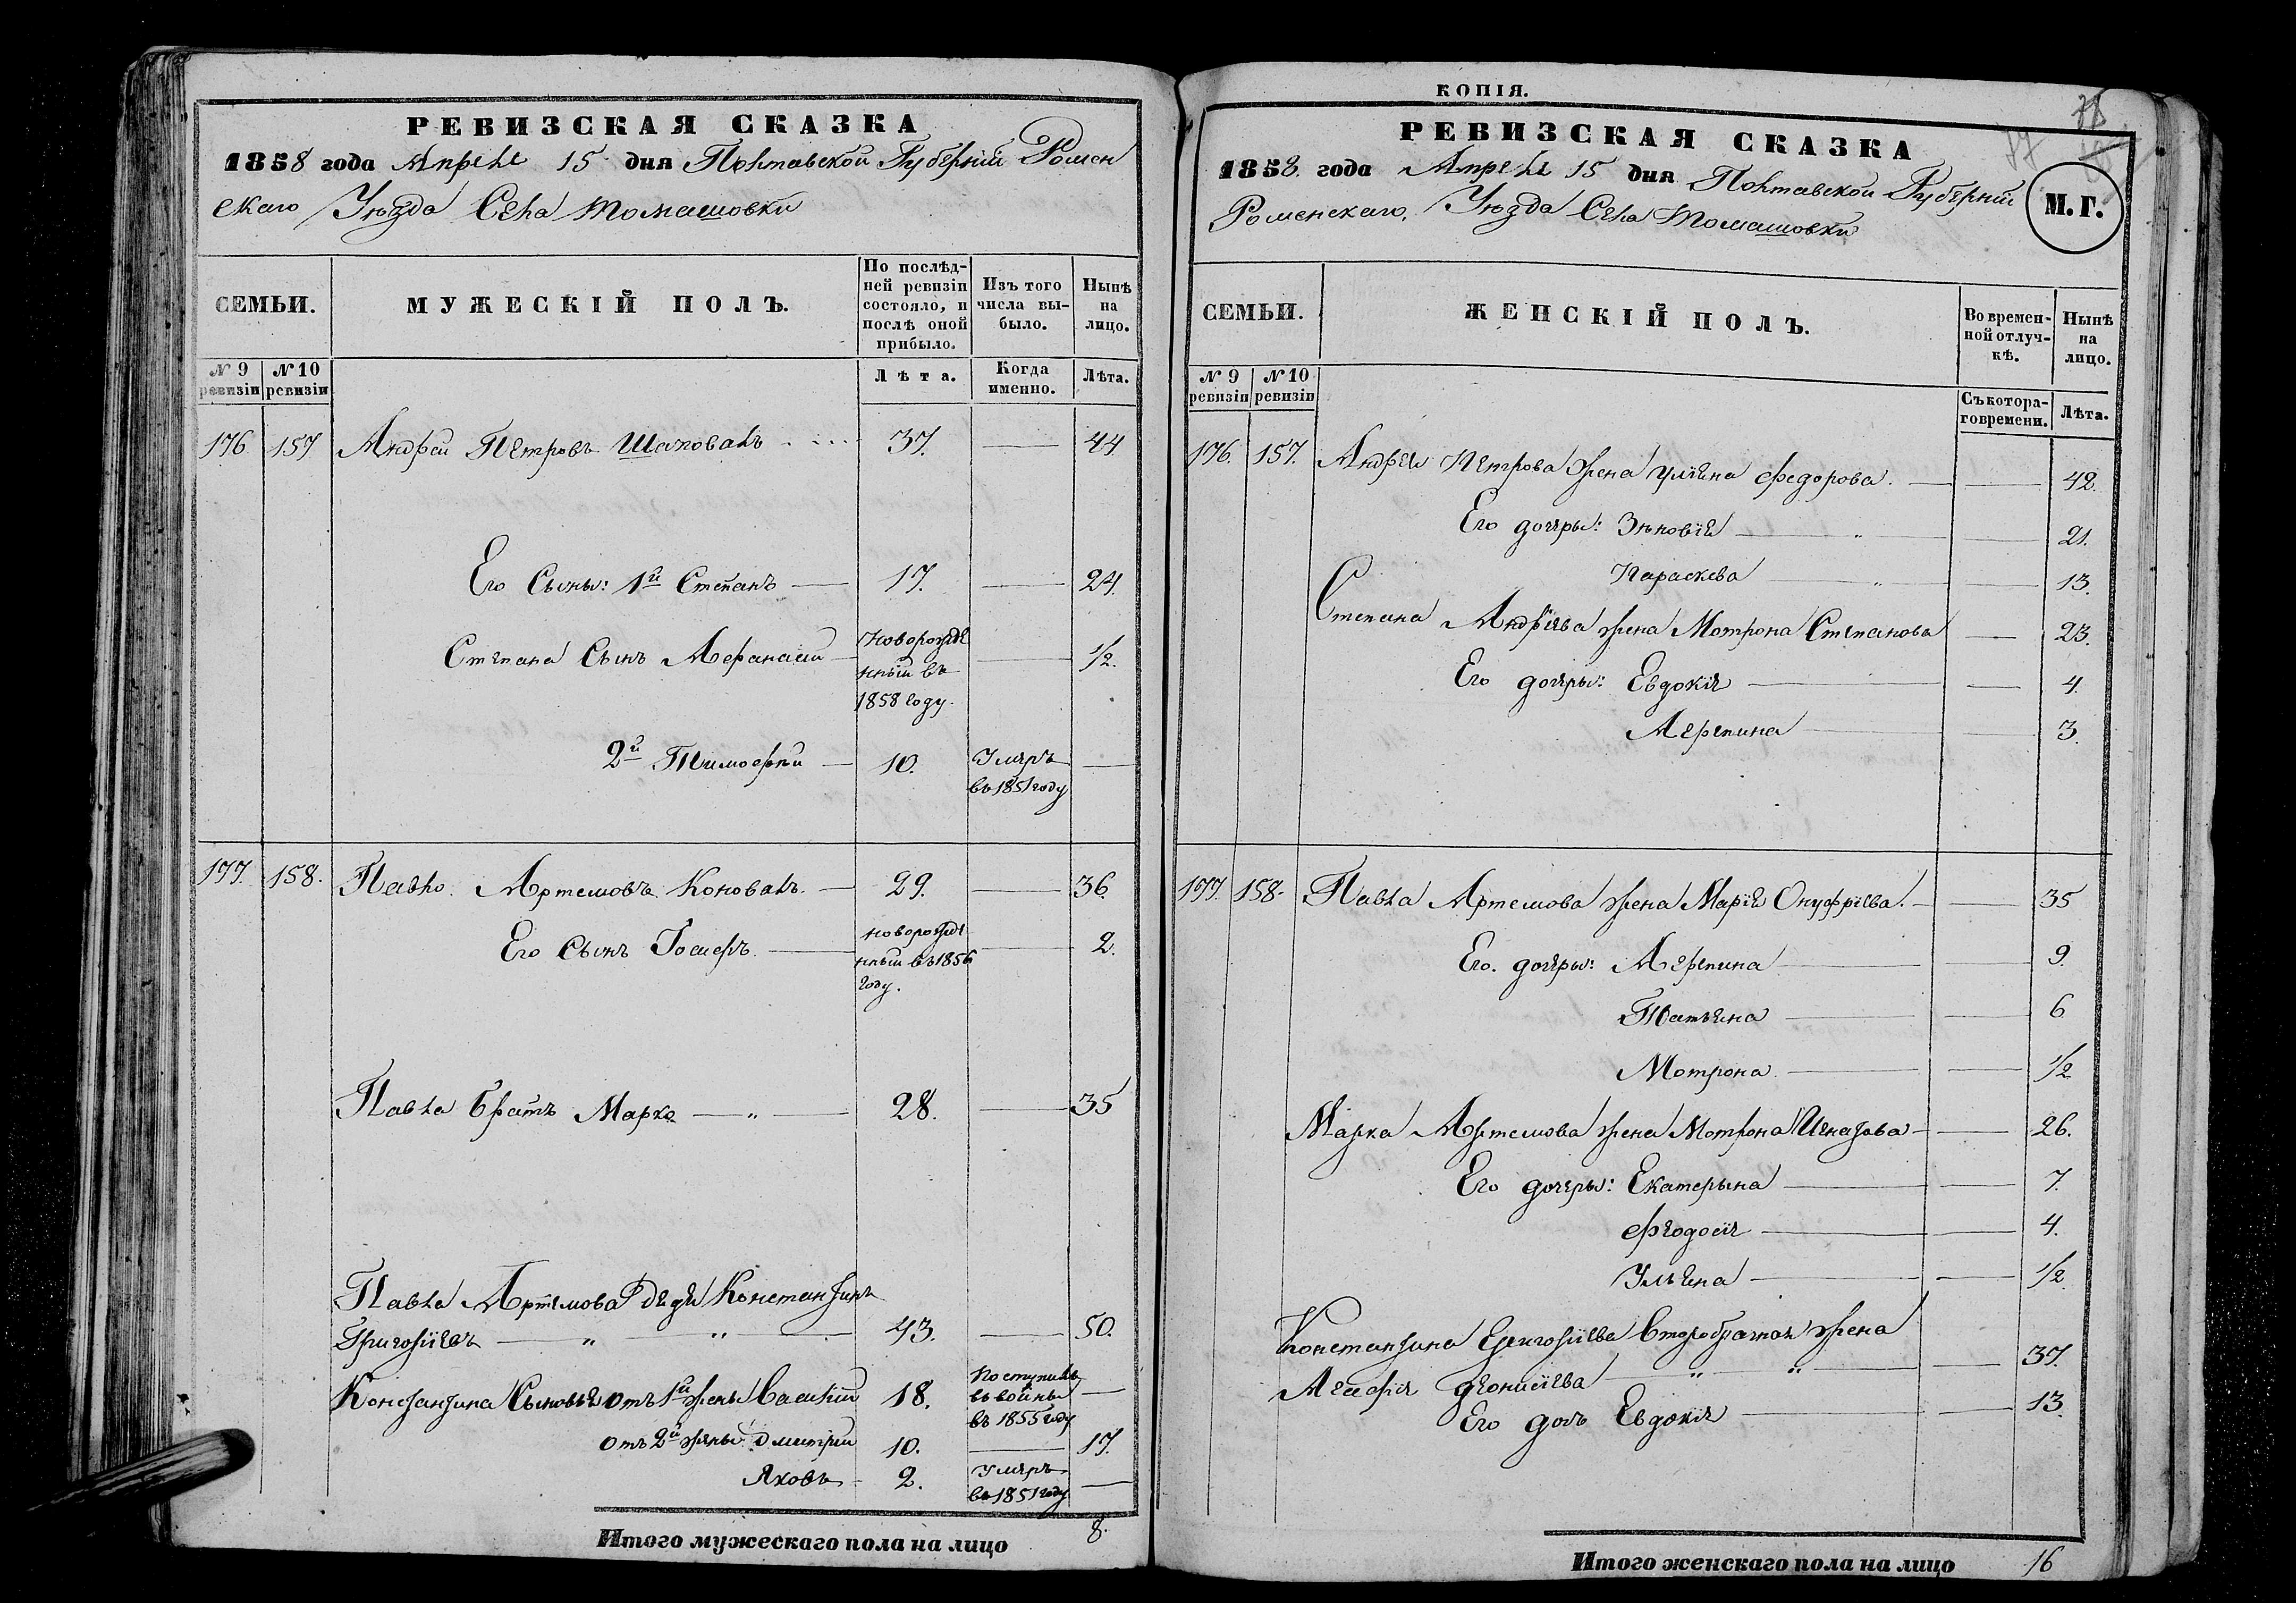 РЕВИЗСКАЯ СКАЗКА
1858 года Апреля 15 дня Полтавской Губерніи Ромен
скаго Уѣзда Села Томашовки
СЕМЬИ.
МУЖЕСКІЙ ПОЛЪ.
По послѣд-
ней ревизіи
состояло, и
послѣ оной
прибыло.
Изъ того
числа вы-
было.
Нынѣ
на
лицо.
№ 9 ревизіи
№ 10 ревизіи
Лѣта.
Когда
именно.
Лѣта.
176. 157 Андрей Петровъ Шаповалъ 37. 44
Его Сыны: 1й Степанъ 17. 24.
Степана Сынъ Афанасій Новорожде
нный въ
1858 году. 1/2.
2й Тимофей 10. Умеръ
въ 1851 году
177. 158. Павло Артемовъ Коновалъ. 29. 36.
Его Сынъ Іосифъ новорожде
нный въ 1856
году. 2.
Павла братъ Марко 28. 35
Павла Артемова дядя Констанзинъ
Григоріевъ 43. 50.
Констанзина Сыновья отъ 1й жены Василій 18. Поступилъ
въ войны
въ 1855 году
отъ 2й жены Дмитрій 10. 17.
Яковъ 2. Умеръ
въ 1851 году
Итого мужескаго пола на лицо 8.
КОПІЯ.
78
РЕВИЗСКАЯ СКАЗКА
М.Г.
1858. года Апреля 15 дня Полтавской Губерніи
Роменскаго, Уѣзда Села Томашовки
СЕМЬИ.
ЖЕНСКІЙ ПОЛЪ.
Во времен-
ной отлуч-
кѣ.
Нынѣ
на
лицо.
№ 9 ревизіи
№ 10 ревизіи
Съ котора-
го времени.
Лѣта.
176. 157. Андрея Петрова жена Уляна Федорова. 42.
Его дочеры: Зѣновія 21.
Параскева 13.
Степана Андріева жена Мотрона Степанова 23.
Его дочеры: Евдокія 4.
Агрепина 3.
177. 158. Павла Артемова жена Марія Онуфріева. 35
Его. дочеры: Агрепина 9.
Татьяна 6
Мотрона 1/2
Марка Артемова жена Мотрона Игнатова 26.
Его дочеры: Екатерына 7.
Феодосія 4.
Ульяна 1/2
Констанзина Григоріева Второбрачная жена
Агафія Деонисіева 37.
Его дочь Евдокія 13.
Итого женскаго пола на лицо 16